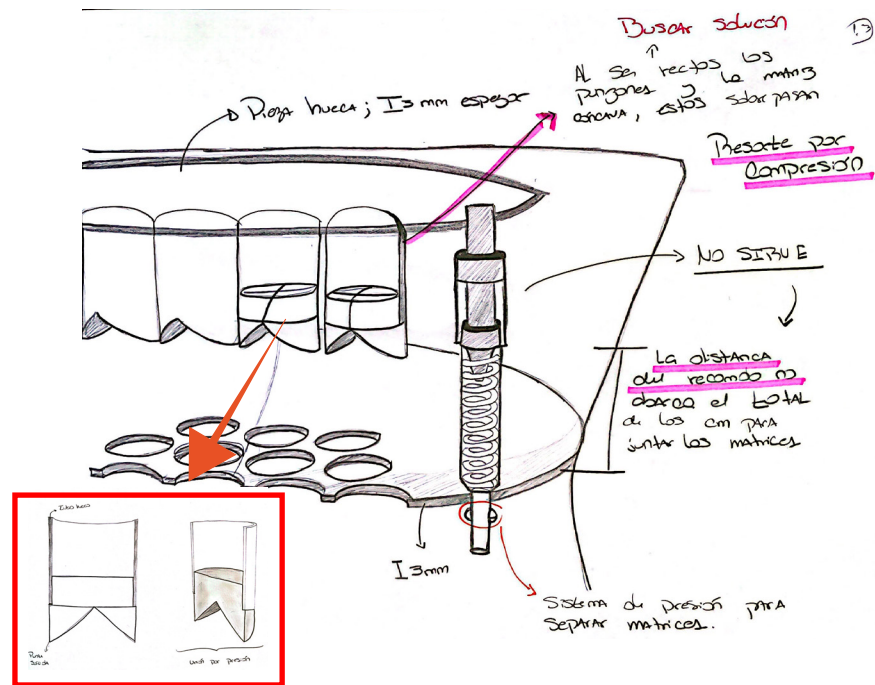 Buscar solución
1.3
AL Ser rectos los
punzones y la matriz
concava, estos sobrepasan
Pieza hueca; I 3 mm espesor
Resorte por
Compresión
NO SIRVE
La distancia
del recorrido no
abarca el total
de los cm para
juntar las matrices
I 3mm
Sistema de presión para
separar matrices.
Tubo hueco
Punta
Sólida
Unión por presión